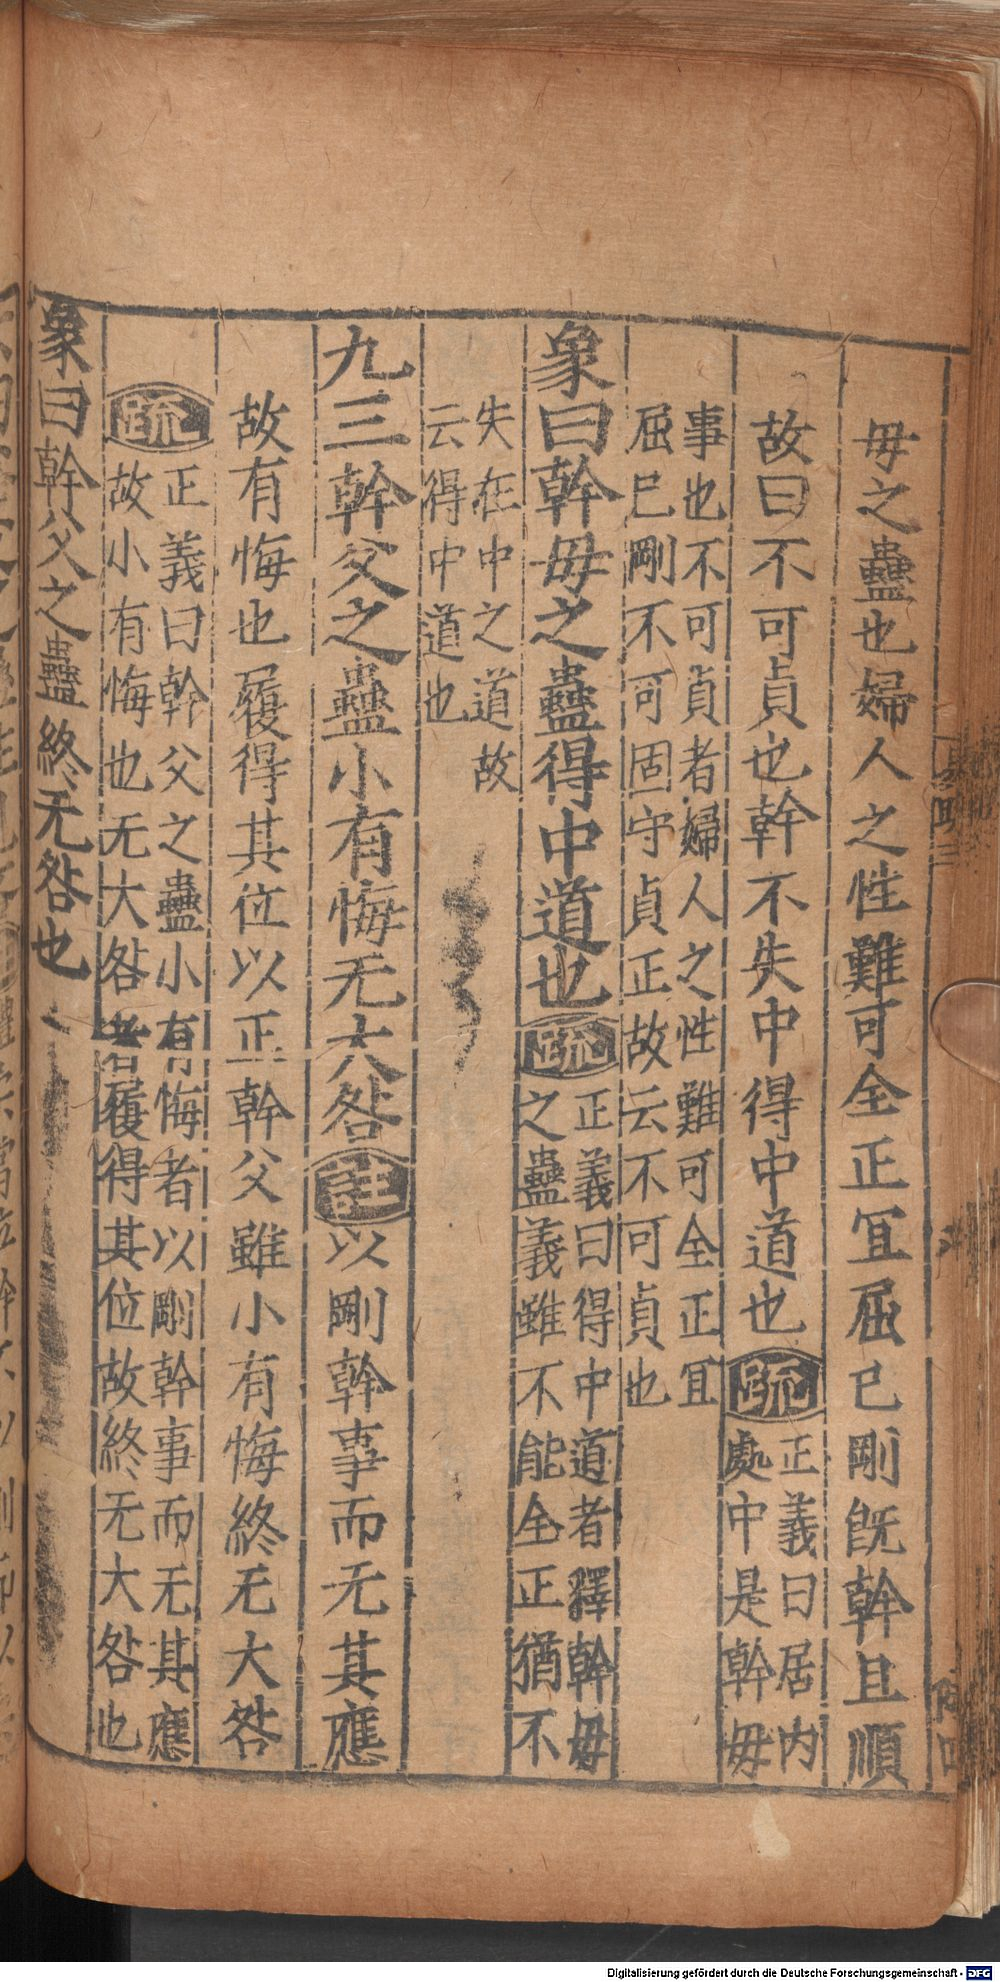 毋之蠱也婦人之性難可全正冝屈已剛既幹且順
故曰不可貞也幹不失中得中道也疏正義曰居内
處中是幹毋
事也不可貞者婦人之性難可全正冝
屈巳剛不可固守貞正故云不可貞也
象曰幹毋之蠱得中道也疏正義曰得中道者釋幹毋
之蠱義雖不能全正猶不
失在中之道故
云得中道也
九三幹父之蠱小有悔无大咎註以剛幹事而无其應
故有悔也履得其位以正幹父雖小有悔終无大咎
疏正義曰幹父之蠱小有悔者以剛幹事而无其應
故小有悔也无大咎者履得其位故終无大咎也
象曰幹父之蠱終无咎也
Digitalisierung gefördert durch die Deutsche Forschungsgemeinschaft - DFG